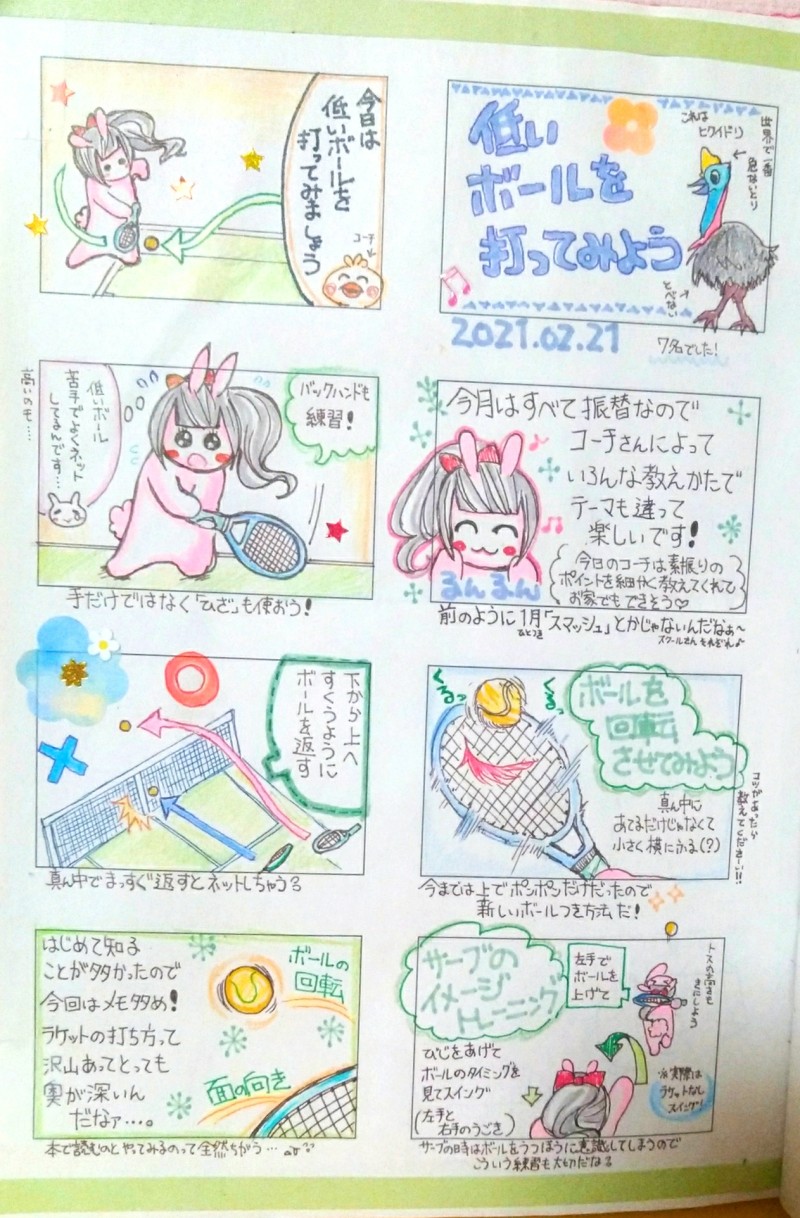 低い
ボールを
打ってみよう
これは
ヒクイドリ
世界で一番
危ないとり
とべない
2021.02.21
7名でした!
今日は
低いボールを
打ってみましょう
コーチ
今月はすべて振替なので
コーチさんによって
いろんな教えかたで
テーマも違って
楽しいです!
今日のコーチは素振りの
ポイントを細やく教えてくれて
お家でもできそう♡
るんるん
前のように1月「スマッシュ」とかじゃないんだなぁ〜
ひとつき
スクールさんそれぞれ♪
バックハンドも
練習!
低いボール
苦手でよくネット
してるんです…
高いのも…
手だけではなく「ひざ」も使おう!
くるっ
くるっ
ボールを
回転
させてみよう
真ん中に
あてるだけじゃなくて
小さく横にふる(?)
今までは上でポンポンだけだったので
新しいボールつき方法だ!
下から上へ
すくうように
ボールを返す
真ん中でまっすぐ返すとネットしちゃうよ
サーブの
イメージ
トレーニング
左手で
ボールを
上げて
トスの高さも
きにしよう
ひじをあげて
ボールのタイミングを
見てスイング
(左手と
右手のうごき)
※実際は
ラケットなし
スイング!
サーブの時はボールをうつほうに意識してしまうので
こういう練習も大切だなぁ
はじめて知る
ことが多かったので
今回はメモ多め!
ラケットの打ち方って
沢山あってとっても
奥が深いん
だなァ…。
ボールの
回転
面の向き
本で読むのとやってみるのって全然ちがう…